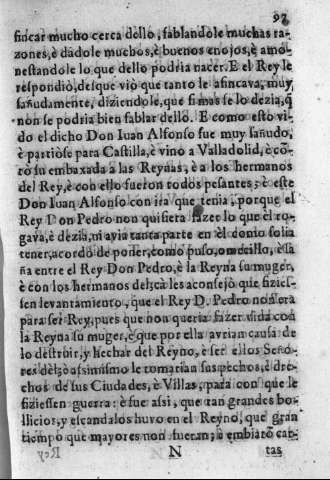 97
fincar mucho cerca dello, fablandole muchas ra-
zones, è dadole muchos, è buenos enojos, è amo-
nestandole lo que dello podria nacer. E el Rey le
respondiò, desque viò que tanto le afincava, muy
sañudamente, diziendole, que si mas se lo dezia, q̃
non se podria bien fablar dello. E como esto vi-
do el dicho Don Iuan Alfonso fue muy sañudo,
è partiòse para Castilla, è vino a Valladolid, è cõ-
tò su embaxada à las Reynas, è a los hermanos
del Rey, è con ello fueron todos pesantes; è este
Don Iuan Alfonso con ira que tenia, porque el
Rey Don Pedro non quisiera fazer lo que el ro-
gava, è dezia, ni avia tanta parte en èl como solia
tener, acordò de poner, como puso, omezillo, è sa
ña entre el Rey Don Pedro, è la Reyna su muger,
è con los hermanos les aconsejò que fizies-
sen levantamiento, que el Rey D. Pedro non era
para ser Rey, pues que non queria fazer vida con
la Reyna su muger, è que por ella avrian causa de
lo destruir, y hechar del Reyno, è ser ellos Seño-
res asimismo le tomarian sus pechos, è dre-
chos de sus Ciudades, è Villas, para con que le
fiziessen guerra: è fue assi, que tan grandes bo-
llicios, y escandalos huvo en el Reyno, que gran
tiempo que mayores non fueran; è embiarõ car-
N tas